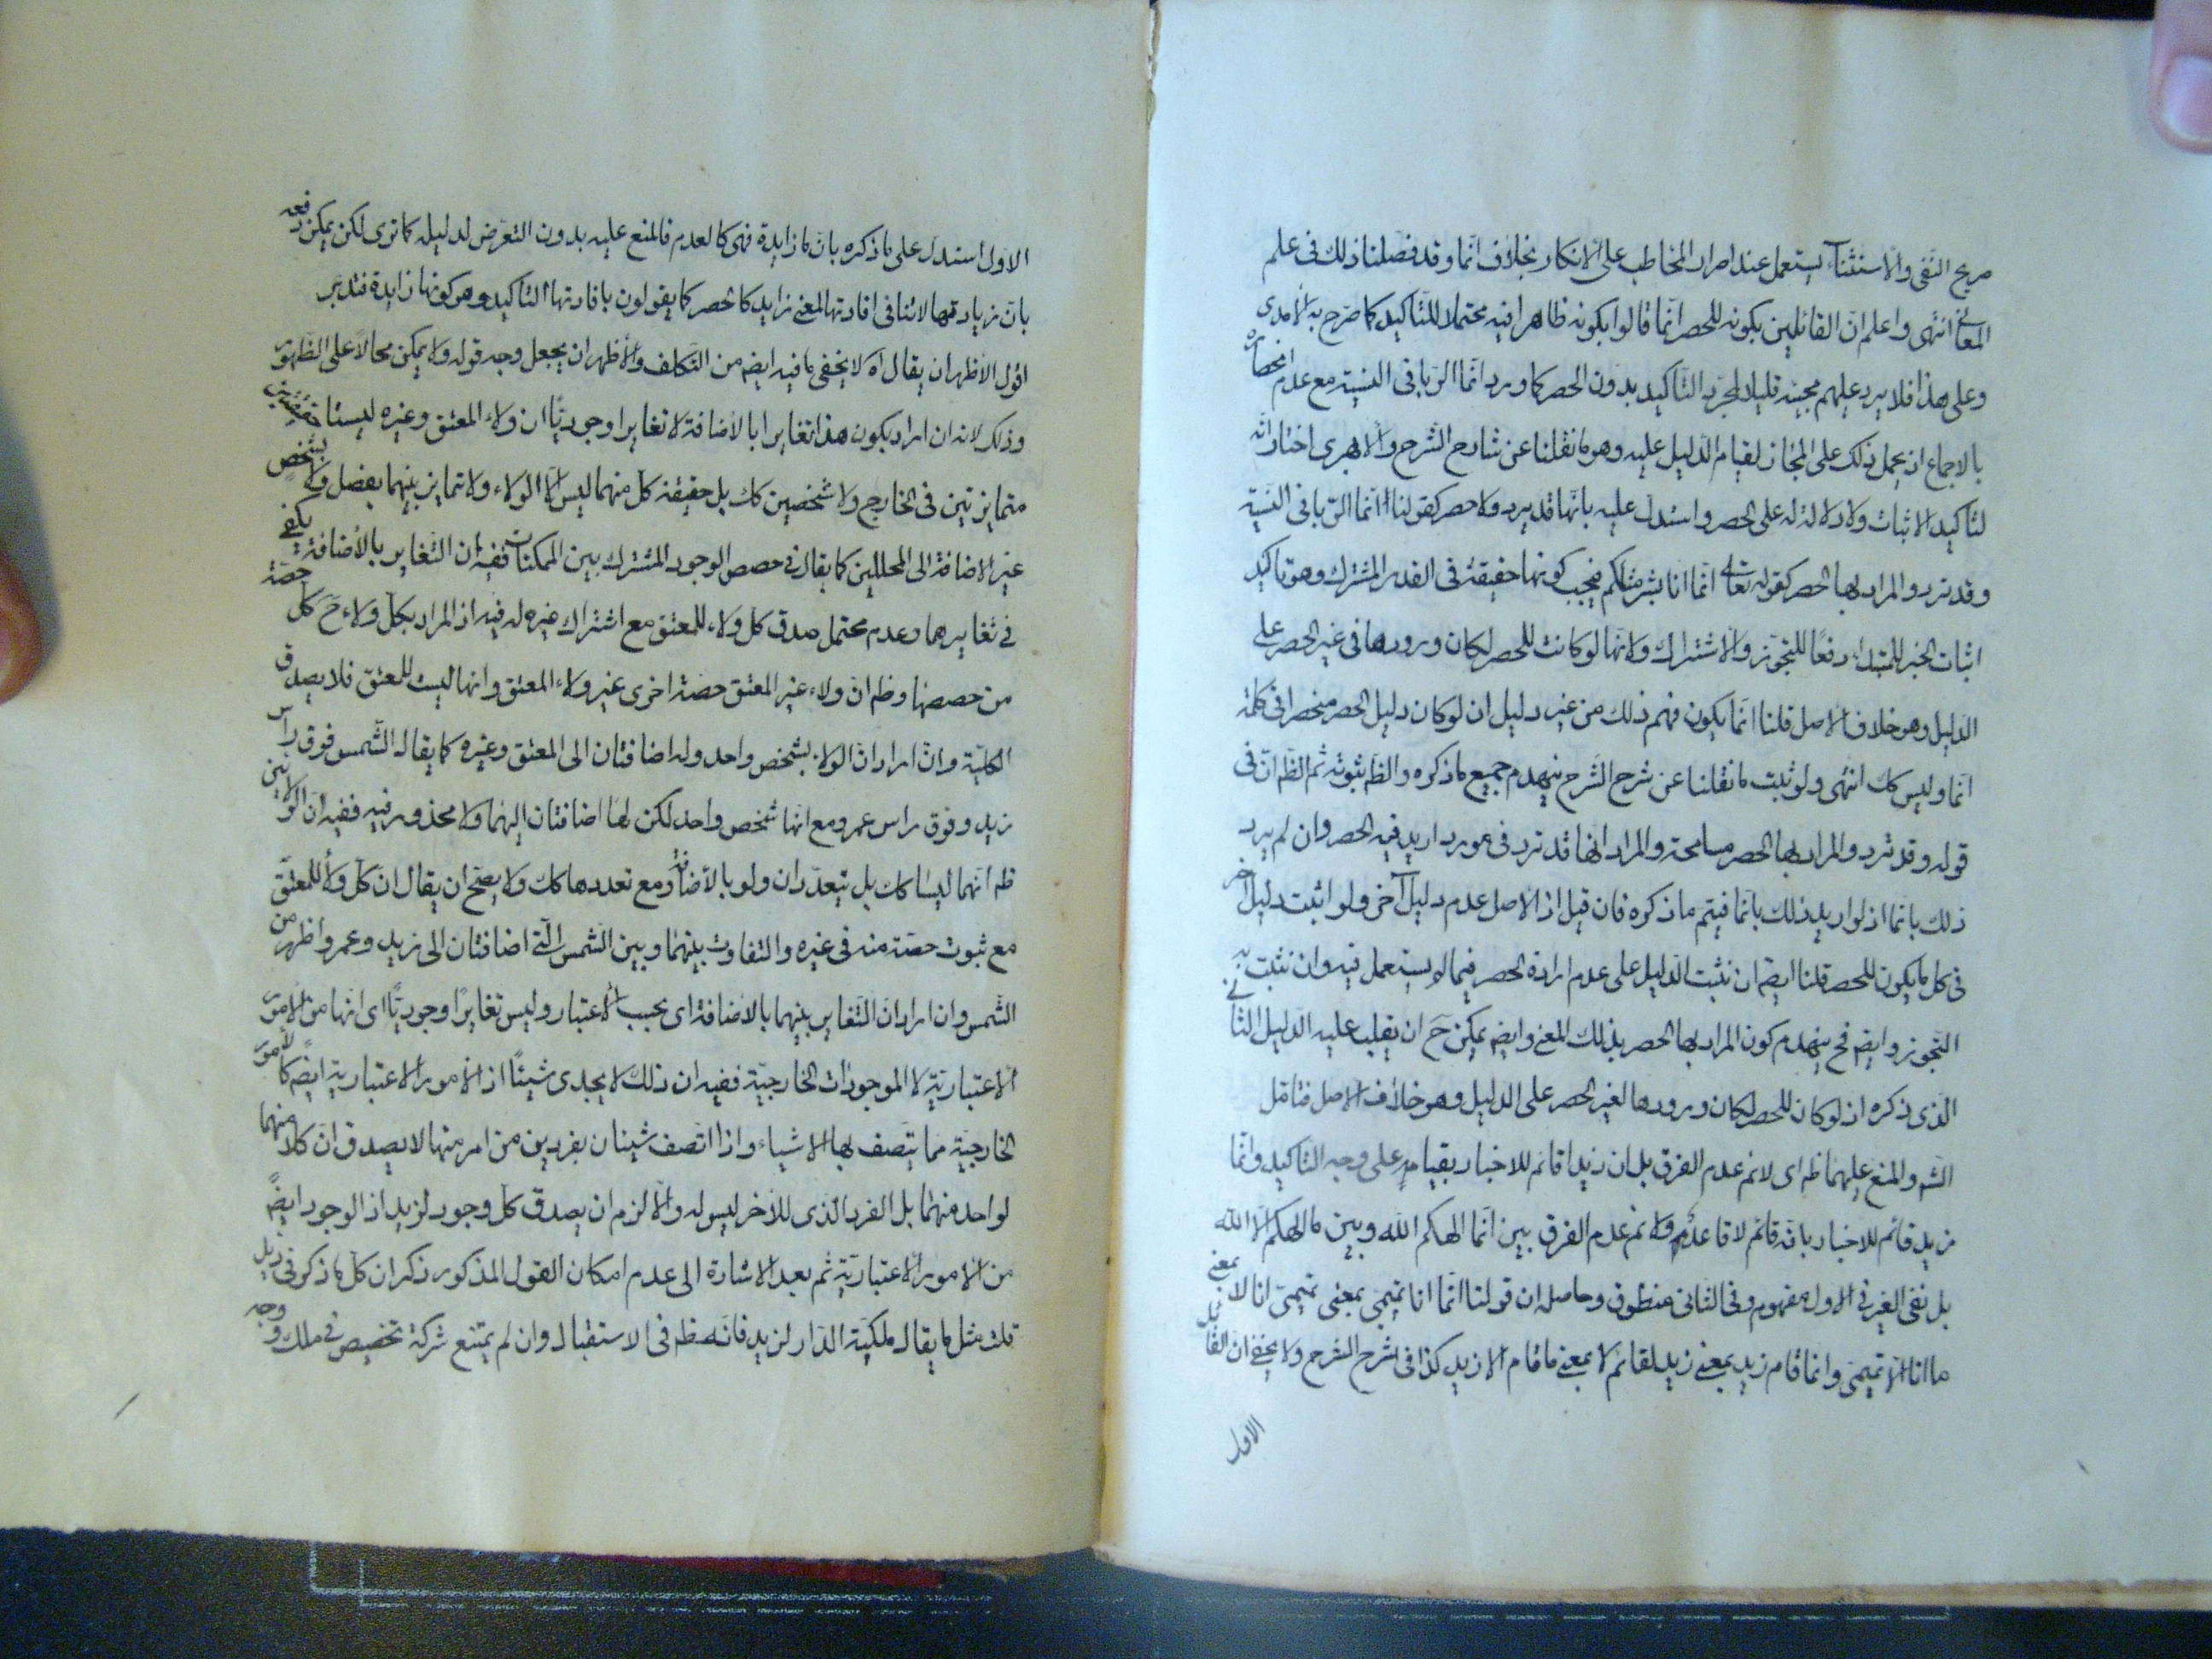 صريح النفى والاستثناء يستعمل عند اصرار المخاطب على الانكار بخلاف انما وقد فصلنا ذلك فى علم
المعانى انتهى واعلم ان القائلين بكونه للحصر انما قالوا بكونه ظاهرا فيه محتملا للتاكيد كما صرح به الآمدى
وعلى هذا فلا يرد عليهم مجيئه قليلا لمجرد التاكيد بدون الحصر كما ورد انما الربا فى النسية مع عدم انحصاره
بالاجماع اذ يحمل ذلك على المجاز لقيام الدليل عليه وهو ما نقلنا عن شارح الشرح والابهرى اختار انه
لتاكيد الاثبات ولا دلالة له على الحصر واستدل عليه بانها قد يرد ولا حصر كقولنا انما الربا فى النسية
وقد ترد والمراد بها الحصر كقوله تعالى انما انا بشر مثلكم فيجب كونها حقيقة فى القدر المشترك وهو تاكيد
اثبات الخبر للمبتدا دفعا للتجوز والاشتراك ولانها لو كانت للحصر لكان ورودها فى غير الحصر على
الدليل وهو خلاف الاصل قلنا انما يكون فهم ذلك من غير دليل ان لو كان دليل الحصر منحصرا فى كلمة
انما وليس كك انتهى ولو ثبت ما نقلنا عن شرح الشرح ينهدم جميع ما ذكره والظ ثبوته ثم الظ ان فى
قوله وقد ترد والمراد بها الحصر مسامحة والمراد انها قد ترد فى مورد اريد فيه الحصر وان لم يرد
ذلك بانما اذ لو اريد ذلك بانما فيتم ما ذكره فان قيل اذ الاصل عدم دليل آخر ولو اثبت دليل آخر
فى كل ما يكون للحصر قلنا ايض ان نثبت الدليل على عدم ارادة الحصر فيما لو يستعمل فيه وان نثبت به
التجوز وايض فح ينهدم كون المراد بها الحصر بذلك المعنى وايض يمكن ح ان يقلب عليه الدليل الثانى
الذى ذكره اذ لو كان للحصر لكان ورودها لغير الحصر على الدليل وهو خلاف الاصل فتامل
الش والمنع عليهما ظ اى لا نم عدم الفرق بل ان زيدا قائم للاخبار بقيامه على وجه التاكيد وانما
زيد قائم للاخبار بانه قائم لا قاعد ولا نم عدم الفرق بين انما الهكم الله وبين ما الهكم الا الله
بل نفى الغير فى الاول مفهوم وفى الثانى منطوق وحاصله ان قولنا انما انا تميمى بمعنى تميمى انا لا بمعنى
ما انا الا تميمى وانما قام زيد بمعنى زيد لقائم لا بمعنى ما قام الا زيد كذا فى شرح الشرح ولا يخفى ان القائل
الاول
الاول استدل على ما ذكره بان ما زايدة فهى كالعدم فالمنع عليه بدون التعرض لدليله كما ترى لكن يمكن دفعه
بان زيادتها لا تنافى افادتها المعنى زايد كالحصر كما يقولون بافادتها التاكيد وهو كونها زايدة فتدبر
اقول الاظهر ان يقال اه لا يخفى ما فيه ايض من التكلف والاظهر ان يجعل وجه قوله ولا يمكن محالا على الظهور
وذلك لانه ان اراد بكون هذا تغايرا بالاضافة لا تغايرا وجوديا ان ولاء المعتق وغيره ليستا حقيقتين
متمايزتين فى الخارج ولا شخصين كك بل حقيقة كل منهما ليس الا الولاء ولا تمايز بينهما بفصل ولا بشخص
غير الاضافة الى المحلين كما يقال فى حصص الوجود المشترك بين الممكنات ففيه ان التغاير بالاضافة يكفى
فى تغايرهما وعدم محتمل صدق كل ولاء للمعتق مع اشتراك غيره له فيه اذ المراد بكل ولاء ح كل حصة
من حصصها وظ ان ولاء غير المعتق حصة اخرى غير ولاء المعتق وانها ليست للمعتق فلا يصدق
الكلية وان اراد ان الولاء شخص واحد وله اضافتان الى المعتق وغيره كما يقال الشمس فوق راس
زيد وفوق راس عمرو مع انها شخص واحد لكن لها اضافتان اليهما ولا محذور فيه ففيه ان الولائين
ظ انهما ليسا كك بل يتعددان ولو بالاضافة ومع تعددها كك ولا يصح ان يقال ان كل ولاء للمعتق
مع ثبوت حصة منه فى غيره والتفاوت بينهما وبين الشمس التى اضافتان الى زيد وعمرو اظهر من
الشمس وان اراد ان التغاير بينهما بالاضافة اى بحسب الاعتبار وليس تغايرا وجوديا اى انها من الامور
الاعتبارية لا الموجودات الخارجية ففيه ان ذلك لا يجدى شيئا اذ الامور الاعتبارية ايض كالامور
الخارجية مما يتصف بها الاشياء واذا اتصف شيئان بفردين من امر منها لا يصدق ان كلا منهما
لواحد منهما بل الفرد الذى للاخر ليس له والا لزم ان يصدق كل وجود لزيد اذ الوجود ايض
من الامور الاعتبارية ثم بعد الاشارة الى عدم امكان القول المذكور ذكر ان كل ما ذكر فى ذيل
قلت مثل ما يقال ملكية الدار لزيد فانه ظ فى الاستقبال وان لم يمتنع شركة تخصيص فى ملك وجه